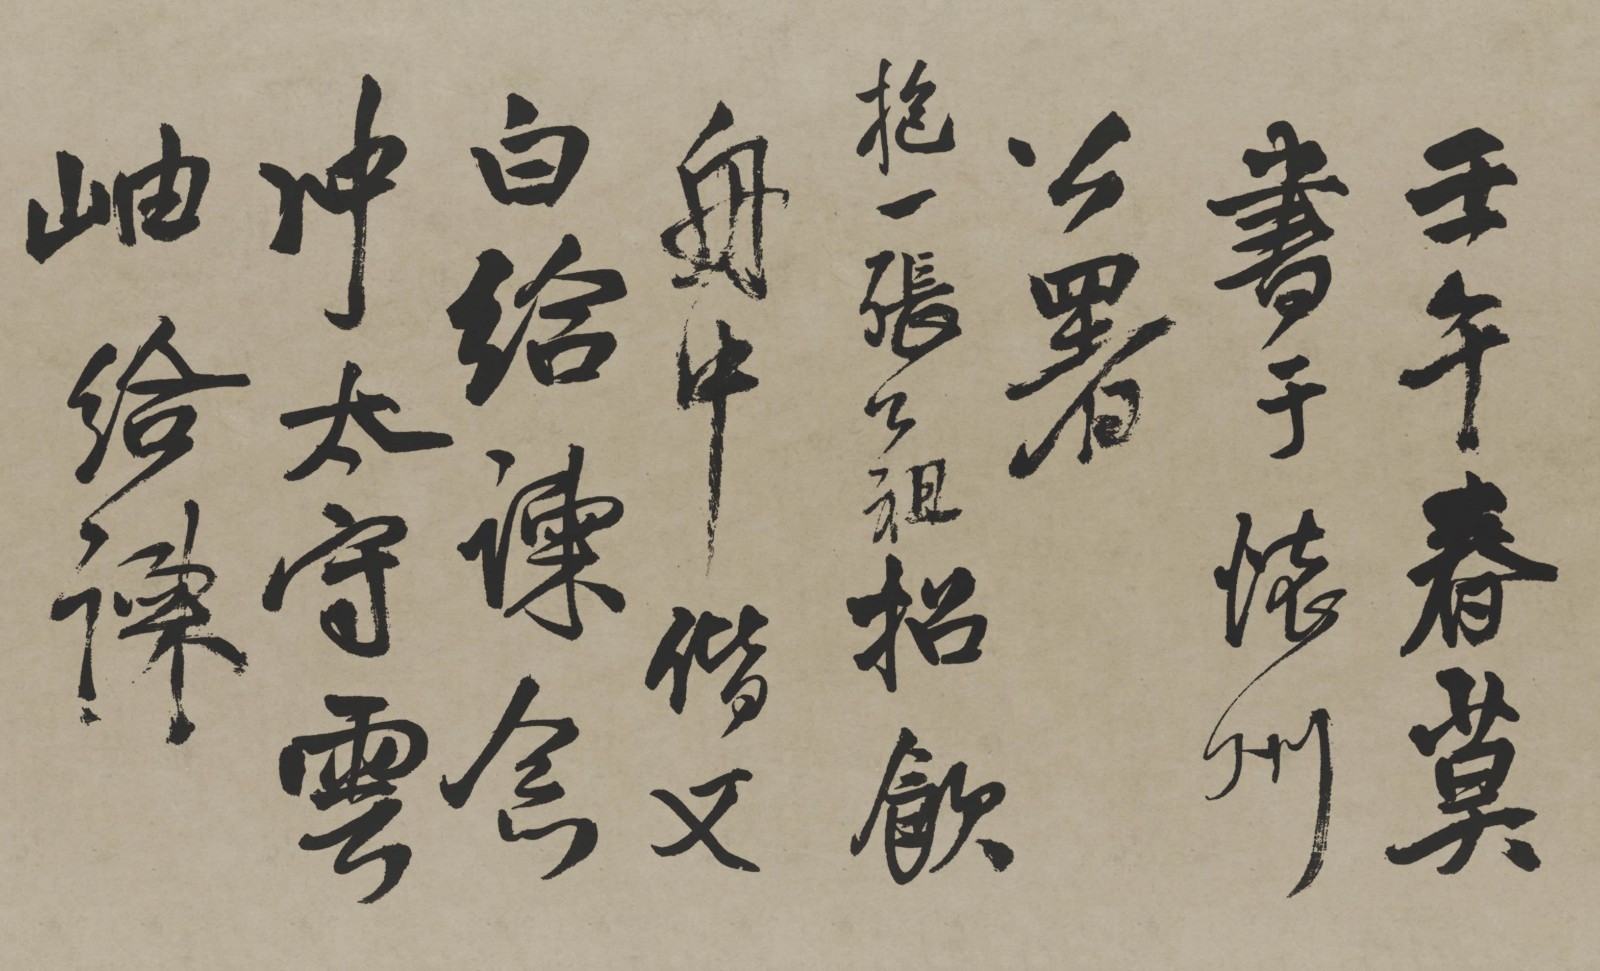 壬午春莫
書于懷州
公署
抱一張公祖招飲
舟中偕文
白給諫念
冲太守雲
岫給諫